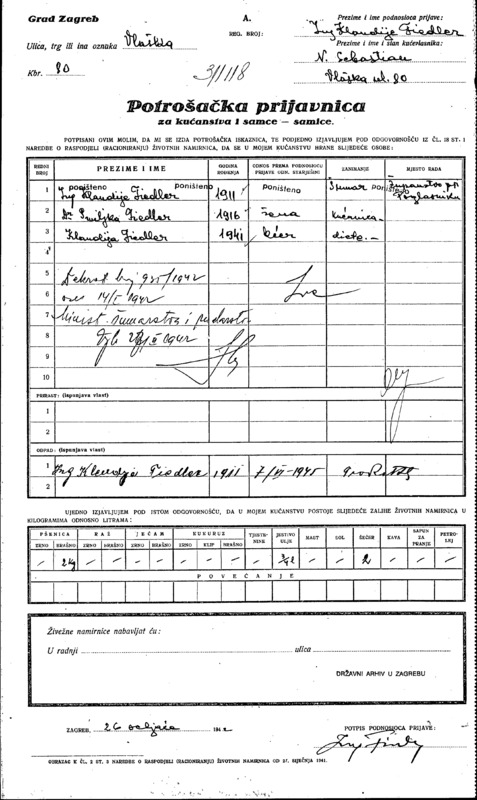 Grad Zagreb
A.
REG. BROJ:
Prezime i ime podnosioca prijave:
Ing Klaudije Fiedler
Ulica, trg ili ina oznaka Vlaška
Prezime i ime i stan kućevlasnika:
N. Sebastian
Kbr. 90
Vlaška ul. 90
Potrošačka prijavnica
za kućanstva i samce — samice.
POTPISANI OVIM MOLIM, DA MI SE IZDA POTROŠAČKA ISKAZNICA, TE PODJEDNO IZJAVLJUJEM POD ODGOVORNOŠĆU IZ ČL. 18 ST. 1
NAREDBE O RASPODJELI (RACIONIRANJU) ŽIVOTNIH NAMIRNICA, DA SE U MOJEM KUĆANSTVU HRANE SLIJEDEĆE OSOBE:
REDNI BROJ PREZIME I IME GODINA ROĐENJA ODNOS PREMA PODNOSIOCU PRIJAVE ODN. STARJEŠINI ZANIMANJE MJESTO RADA
poništeno poništeno poništeno poništeno
1 Ing Klaudije Fiedler 1911 šumar
2 Dr Smiljka Fiedler 1916 žena kućanica
3 Klaudija Fiedler 1941 kćer dijete.
4
5
6
7
8
9
10
PRIRAST: (ispunjava vlast)
1
2
OTPAD: (ispunjava vlast)
1 Ing Klaudije Fiedler 1911
2
UJEDNO IZJAVLJUJEM POD ISTOM ODGOVORNOŠĆU, DA U MOJEM KUĆANSTVU POSTOJE SLIJEDEĆE ZALIHE ŽIVOTNIH NAMIRNICA U
KILOGRAMIMA ODNOSNO LITRAMA:
PŠENICA RAŽ JEČAM KUKURUZ TJESTENINE JESTIVO ULJE MAST SOL ŠEĆER KAVA SAPUN ZA PRANJE PETROLEJ
ZRNO BRAŠNO ZRNO BRAŠNO ZRNO BRAŠNO ZRNO KLIP BRAŠNO
— 2 kg — — — — — — — — — — 2 — — —
POVEĆANJE
Živežne namirnice nabavljat ću:
U radnji ulica
DRŽAVNI ARHIV U ZAGREBU
ZAGREB, 26 veljače 1942
POTPIS PODNOSIOCA PRIJAVE:
OBRAZAC K ČL. 2 ST. 3 NAREDBE O RASPODJELI (RACIONIRANJU) ŽIVOTNIH NAMIRNICA OD 27. SIJEČNJA 1941.